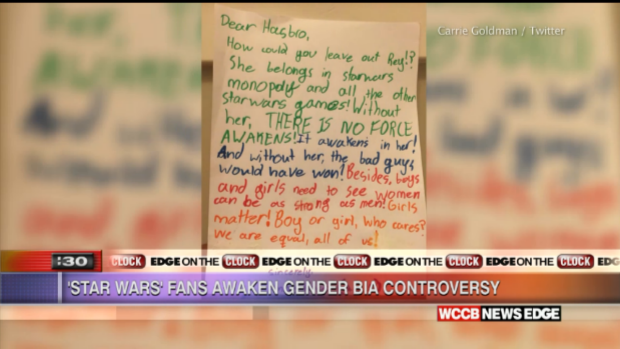 Carrie Goldman / Twitter
Dear Hasbro,
How could you leave out Rey!?
She belongs in starwars
monopoly and all the other
starwars games! Without
her, THERE IS NO FORCE
AWAKENS! It awakens in her!
And without her, the bad guys
would have won! Besides, boys
and girls need to see women
can be as strong as men! Girls
matter! Boy or girl, who cares?
We are equal, all of us!
Sincerely
:30 CLOCK EDGE ON THE CLOCK EDGE ON THE CLOCK EDGE ON THE CLOCK EDG
'STAR WARS' FANS AWAKEN GENDER BIA CONTROVERSY
WCCB NEWS EDGE